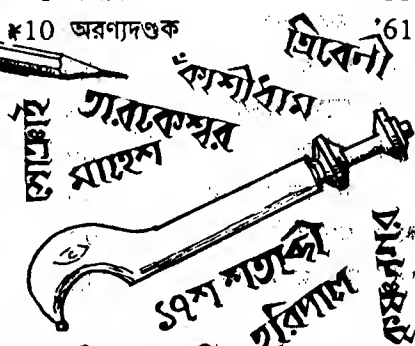 *10 অরণ্যদণ্ডক '61
ত্রিবেনী
কাশীধাম
তারকেশ্বর
সোঞাই
মাহেশ
১৭শ শতাব্দী
হরিপাল
কৃষ্ণনগর